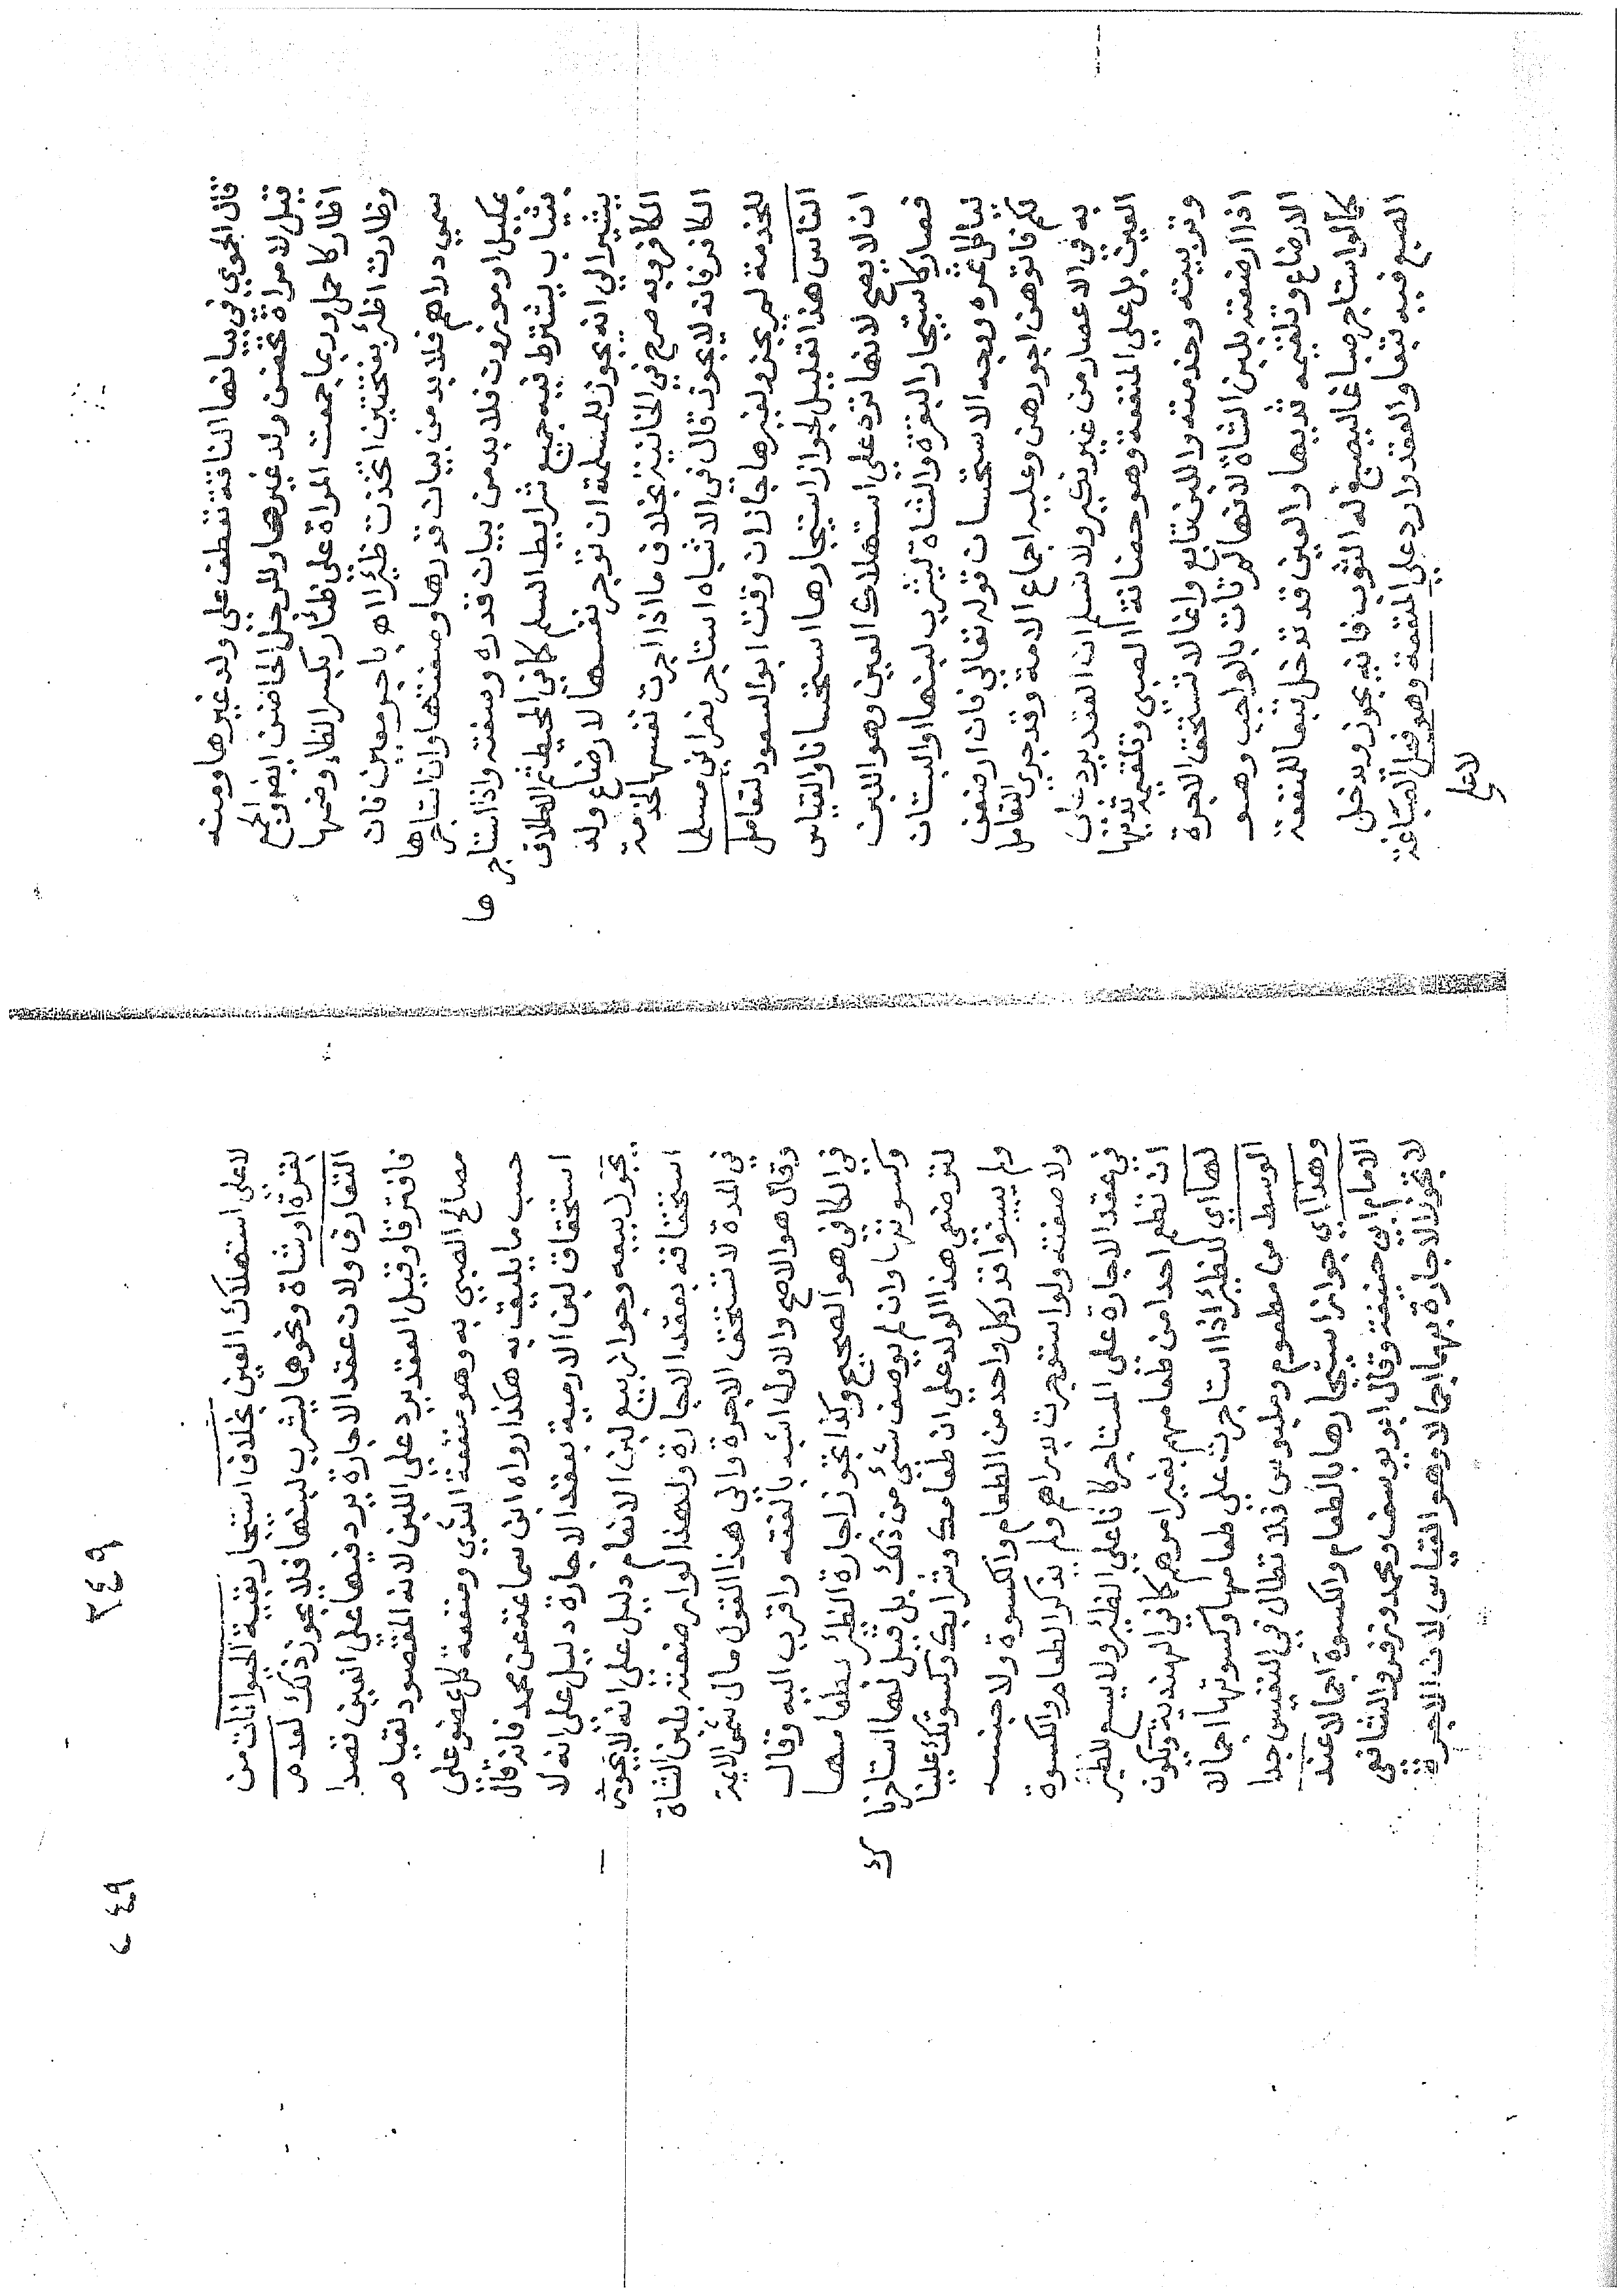 قال الحموي في بيانها الناقة تعطف على ولد غيرها ومنه
قيل لامراة تحضن ولد غيرها وللرجل الحاضن ايضا والجمع
اظار كاحمل وربما جمعت المراة على ظئار بكسر الظاء وضمها
وظارت اظأر بفتحتين اتخذت ظئرا اه باجر معين فان
سمي دراهم فلا بد من بيان قدرها وصفتها وان استاجرها
بمكيل او موزون فلا بد من بيان قدره وصفته واذا استاجرها
بثياب يشترط فيه جميع شرايط السلم كما في المحيط ثم الاطلاق
يشير الى انه يجوز للمسلمة ان توجر نفسها لارضاع ولد
الكافر وبه صرح في الخانية بخلاف ما اذا اجرت نفسها لخدمة
الكافر فانه لا يجوز قال في الاشباه استاجر نصراني مسلما
للخدمة لم يجز ولغيرها جاز ان وقت ابو السعود لتعامل
الناس هذا تعليل لجواز استيجارها استحسانا والقياس
ان لا يصح لانها ترد على استهلاك العين وهو اللبن
فصار كاستيجار البقرة والشاة ليشرب لبنها والبستان
لياكل ثمره ووجه الاستحسان قوله تعالى فان ارضعن
لكم فاتوهن اجورهن وعليه اجماع الامة وقد جرى التعامل
به في الاعصار من غير نكير ولا نسلم ان العقد يرد على
العين بل على المنفعة وهو حضانة الصبي وتلقيمه ثديها
وتربيته وخدمته واللبن تابع وانما لا تستحق الاجرة
اذا ارضعته بلبن الشاة لانها لم تات بالواجب وهو
الارضاع وتلقيمه ثديها والعين قد تدخل تبعا للمنفعة
كما لو استاجر صباغا ليصبغ له الثوب فانه يجوز ويدخل
الصبغ فيه تبعا والعقد وارد على المنفعة وهو فعل الصباغة
لا على
٣٤٩
٢٤٩
لا على استهلاك العين بخلاف استيجار بقية الحيوانات من
بقرة او شاة ونحوهما ليشرب لبنها فلا يجوز ذلك لعدم
التعارف ولان عقد الاجارة يرد فيها على العين قصدا
فافترقا وقيل العقد يرد على اللبن لانه المقصود لقيام
مصالح الصبي به وهو منفعة الثدي ومنفعة كل عضو على
حسب ما يليق به هكذا رواه ابن سماعة عن محمد فانه قال
استحقاق لبن الادمية بعقد الاجارة دليل على انه لا
يجوز بيعه وجواز بيع لبن الانعام دليل على انه لا يجوز
استحقاقه بعقد الاجارة ولهذا لو ارضعته بلبن الشاة
في المدة لا تستحق الاجرة والى هذا القول مال شمس الائمة
وقال هو الاصح والاول اشبه بالفقه واقرب اليه وقال
في الكافي هو الصحيح وكذا تجوز اجارة الظئر بطعامها
وكسوتها وان لم يوصف شئ من ذلك بل قيل لها استاجرناك
لترضعي هذا الولد على ان طعامك وشرابك وكسوتك علينا
ولم يبينوا قدر كل واحد من الطعام والكسوة ولا جنسه
ولا صفته ولو استوجرت بدراهم ولم يذكر الطعام والكسوة
في عقد الاجارة على المستاجر كانا على الظئر ولا يسع للظئر
ان تطعم احدا من طعامهم بغير امرهم كما في الهندية ويكون
لها اي للظئر اذا استاجرت على طعامها وكسوتها اجمالا
الوسط من مطعوم وملبوس فلا تطالب في النفيس جدا
وهذا اي جواز استيجارها بالطعام والكسوة اجمالا عند
الامام ابي حنيفة وقال ابو يوسف ومحمد وزفر والشافعي
لا تجوز الاجارة بهما اجمالا وهو القياس لان الاجرة